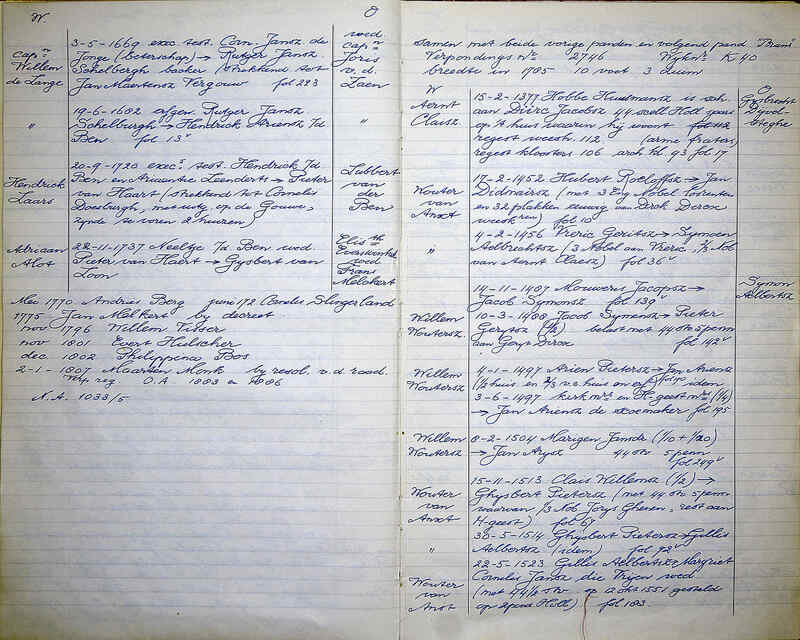 W.
O
capn Willem de Lange
3-5-1669 exec. test. Corn. Jansz de
Jonge (boterschap) → Rutger Jansz
Schelburgh backer (strekkend tot
Jan Maertensz Vergouw fol 273
wed. capn Joris v.d. Laen
"
19-6-1682 erfgen. Rutger Jansz
Schelburgh → Hendrick Ariensz Vd
Ben fol 13v
"
Hendrick Laars
20-9-1720 execs test. Hendrick Vd
Ben en Leenderts → Pieter
van Haert (strekkend tot Cornelis
Doesburgh, met uitg. op de Gouwe,
zijnde te voren 2 huizen)
Lubbert van der Ben
Adriaan Alot
22-11-1737 Neeltje Vd Ben wed.
Pieter van Haert → Gysbert van
Loon
Elisth wed Fran Melckert
Mei 1770 Andries Berg juni 172 Cornelis Slingerland
1775 Jan Melkert by decreet
nov 1796 Willem Tisser
nov 1801 Evert Hielscher
dec 1802 Philippena Bos
2-1-1807 Maarten Monk by resol. v.d. raad.
Verp reg O.A. 1883 en 1886
N.A. 1033/5
Samen met beide vorige panden en volgend pand
Verpondings nrs 2746 Wyknr K 40
breedte in 1785 10 voet 3 duim
W
O
Aernt Claisz
15-2-1377 Hobbe Huusmansz is sch.
aan Dirc Jacobsz 44 scell Holl jaars
op 't huus waerin hij woent
regest weesh. 112 (arme fraters)
regest kloosters 106 arch Vd 93 fol 17
Gysbrecht
Wouter van Anxt
17-2-1452 Hubert Roeloffsz → Jan
(met 3 Eng Nobel losrenten
en 32 plakken eeuwig van Dirck Dircxz
fol 10v
"
4-2-1456 Vreric Geritsz → Symon
Aelbrechtsz (3 Nobel aan Vreric, 1/3 Nob
van Aernt Claesz) fol 36v
14-11-1487 Mouweris Jacopsz →
Jacob Symonsz fol 139v
Symon Aelbertsz
Willem Woutersz
10-3-1488 Jacob Symonsz → Pieter
Gerytsz (1/2) belast met 44 st 5 penn
aan Geryt Dircxz fol 142v
Willem Woutersz
4-1-1497 Arien Pietersz → Jan Ariensz
(1/2 huis en 2/3 v.e. huis en erf) fol 190 idem
3-6-1497 kerkmrs en H-geestmrs (1/4)
→ Jan Ariensz de scoemaker fol 195
Willem Woutersz
8-2-1504 Marigen Jansdr (1/10 + 1/20)
→ Jan Arysz 44 st 5 penn
fol 249v
Wouter van Anxt
15-11-1513 Claes Willemsz (1/2) →
Ghysbert Pietersz (met 44 st 5 penn
waarvan 1/3 Nob Jorys Ghysen, rest aan
H-geest) fol 67
"
30-5-1514 Ghysbert Pietersz → Gilles
Aelbertsz (idem) fol 72v
Wouter van Anxt
22-5-1523 Gilles Aelbertsz → Margriet
Cornelis Jansz die Vrijen wed
(met 44 1/2 st op 12 okt 1551 gesteld
op Holl) fol 183.